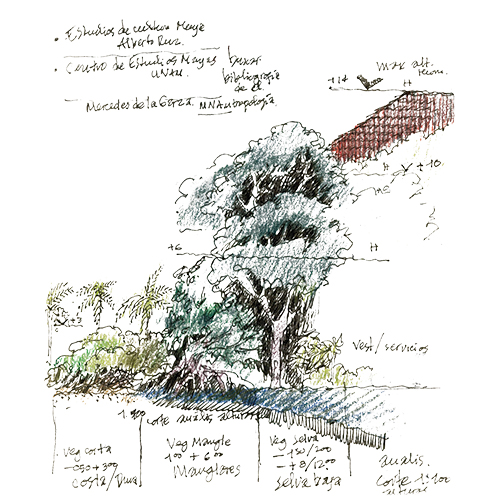 • Estudios de cultura Maya
Alberto Ruz.
• Centro de Estudios Mayas
UNAM
buscar
bibliografía
de él
Mercedes de la Garza. MNAntropología
max alt.
+14
H
+10
+6 H
+3
Vest/servicios
corte análisis alturas
Veg costa
Veg Mangle
Veg Selva
-050+300
100 + 600
-130/200
-+8/1200
costa/Duna
Manglares
Selva baja
analis.
corte 1:100
alturas